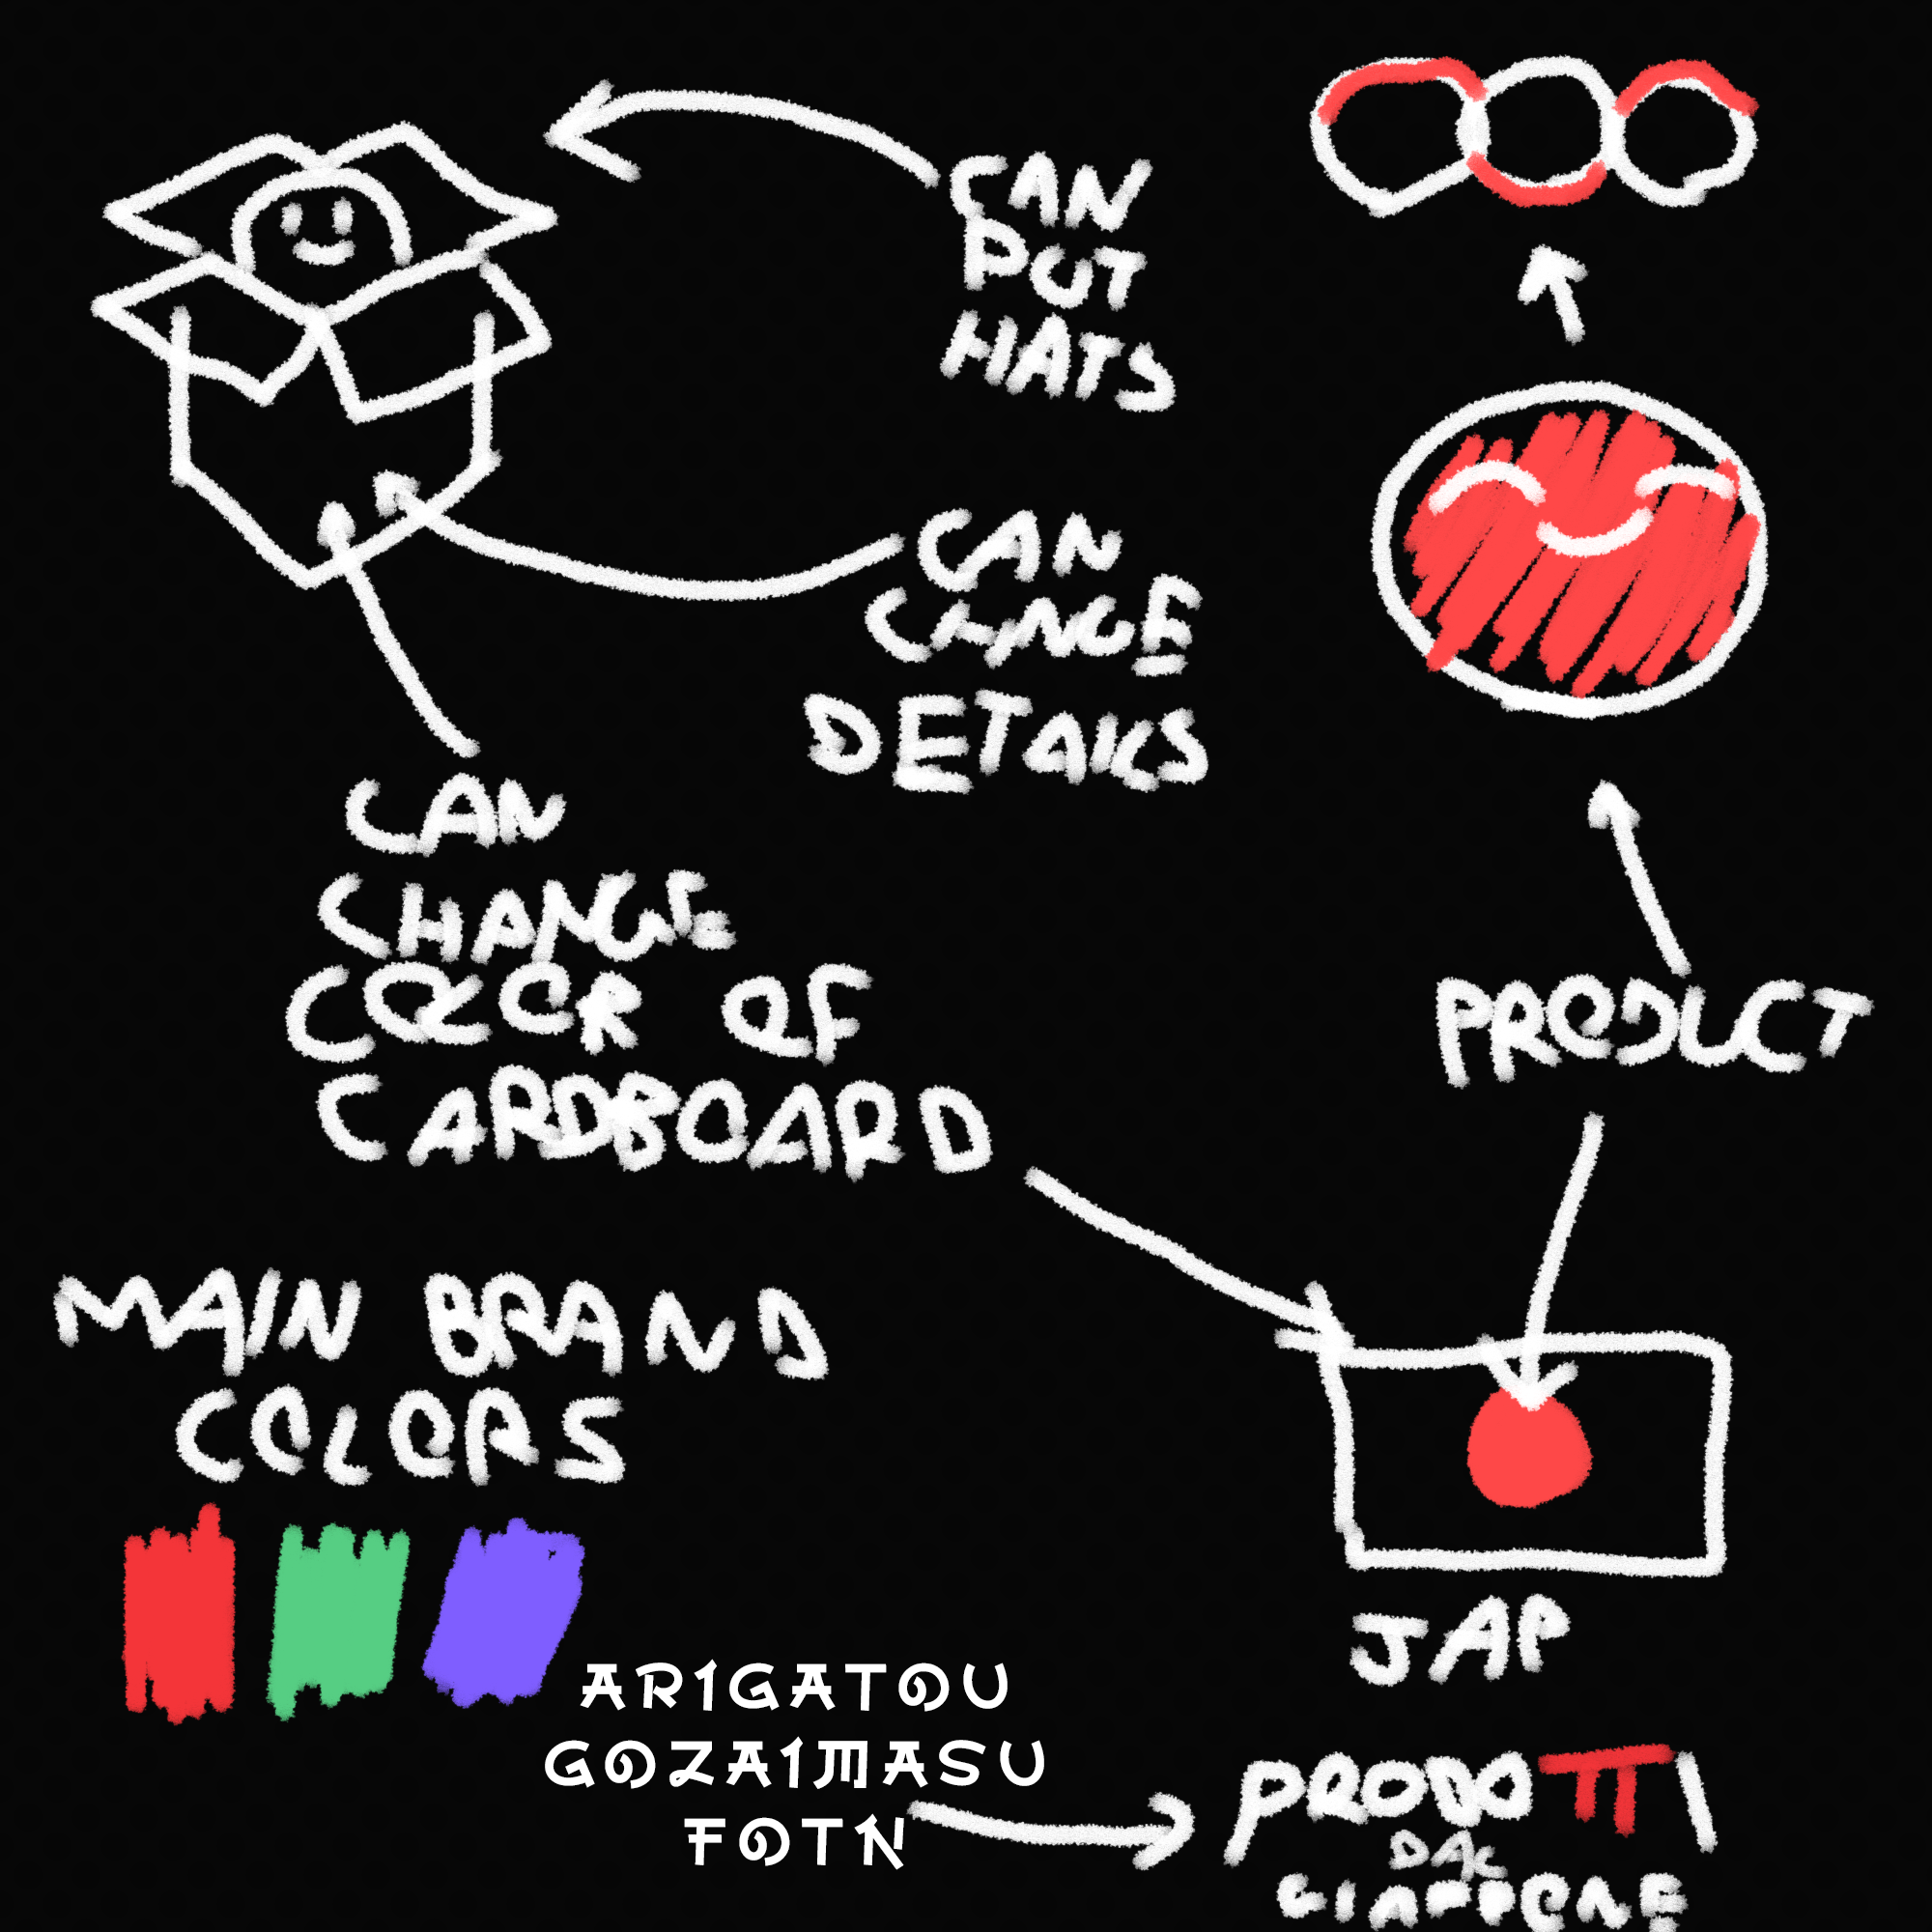 CAN
PUT
HATS
CAN
CHANGE
DETAILS
CAN
CHANGE
COLOR OF
CARDBOARD
PRODUCT
MAIN BRAND
COLORS
JAP
ARIGATOU
GOZAIMASU
FOTN
PRODOTTI
DAL
GIAPPONE